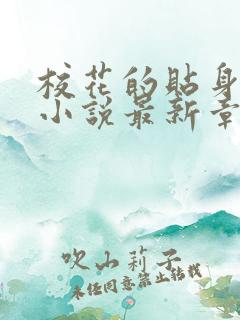 校花的貼身
小說最新章
吹山莉子
未经同意禁止转载